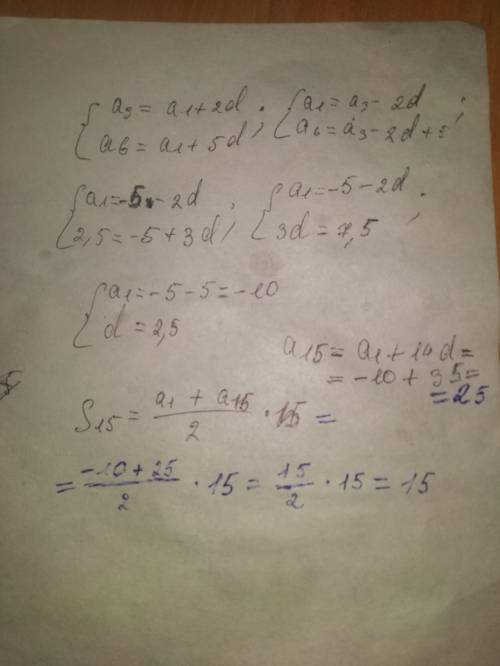 {a₃ = a₁ + 2d ; {a₁ = a₃ - 2d ;
{a₆ = a₁ + 5d ; {a₆ = a₃ - 2d +
{a₁ = -5 - 2d ; {a₁ = -5 - 2d ;
{2,5 = -5 + 3d ; {3d = 7,5
{a₁ = -5 - 5 = -10
{d = 2,5
a₁₅ = a₁ + 14d =
= -10 + 35 =
= 25
S₁₅ = (a₁ + a₁₅)/2 · 15 =
= (-10 + 25)/2 · 15 = 15/2 · 15 = 15